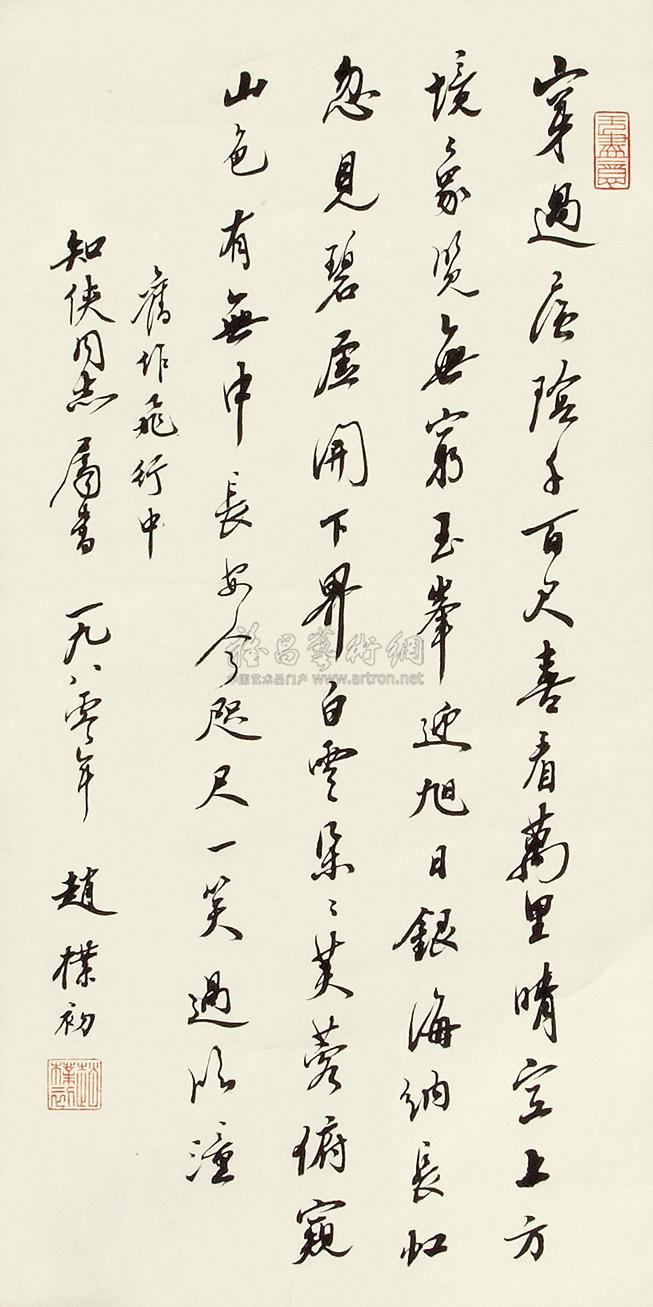 穿過層陰千百尺喜看萬里晴空上方
境象覽無窮玉峯迎旭日銀海納長虹
忽見碧虛開下界白雲朵〻芙蓉俯窺
山色有無中長安今咫尺一笑過臨潼
舊作飛行中
知俠同志屬書 一九八零年 趙樸初
无盡意
趙樸初
雅昌藝術網
中国艺术品门户 www.artron.net